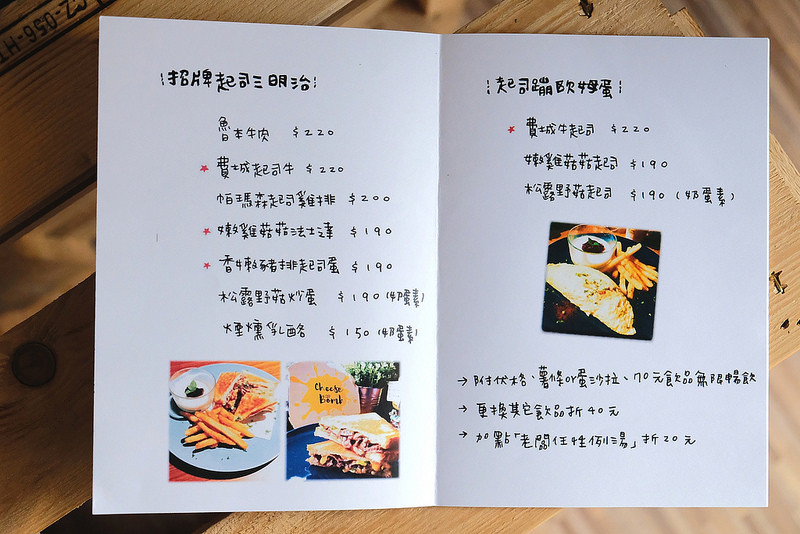 CZ-0556-HT
招牌起司三明治
魯本牛肉 $220
★ 費城起司牛 $220
帕瑪森起司雞排 $200
★ 嫩雞菇菇法士達 $190
★ 香嫩豬排起司蛋 $190
松露野菇炒蛋 $190 (奶蛋素)
煙燻乳酪 $150 (奶蛋素)
Cheese
Bomb
起司蹦歐姆蛋
★ 費城牛起司 $220
嫩雞菇菇起司 $190
松露野菇起司 $190 (奶蛋素)
→ 附優格、薯條or蛋沙拉、70元飲品無限暢飲
→ 更換其它飲品折40元
→ 加點「老闆任性例湯」折20元